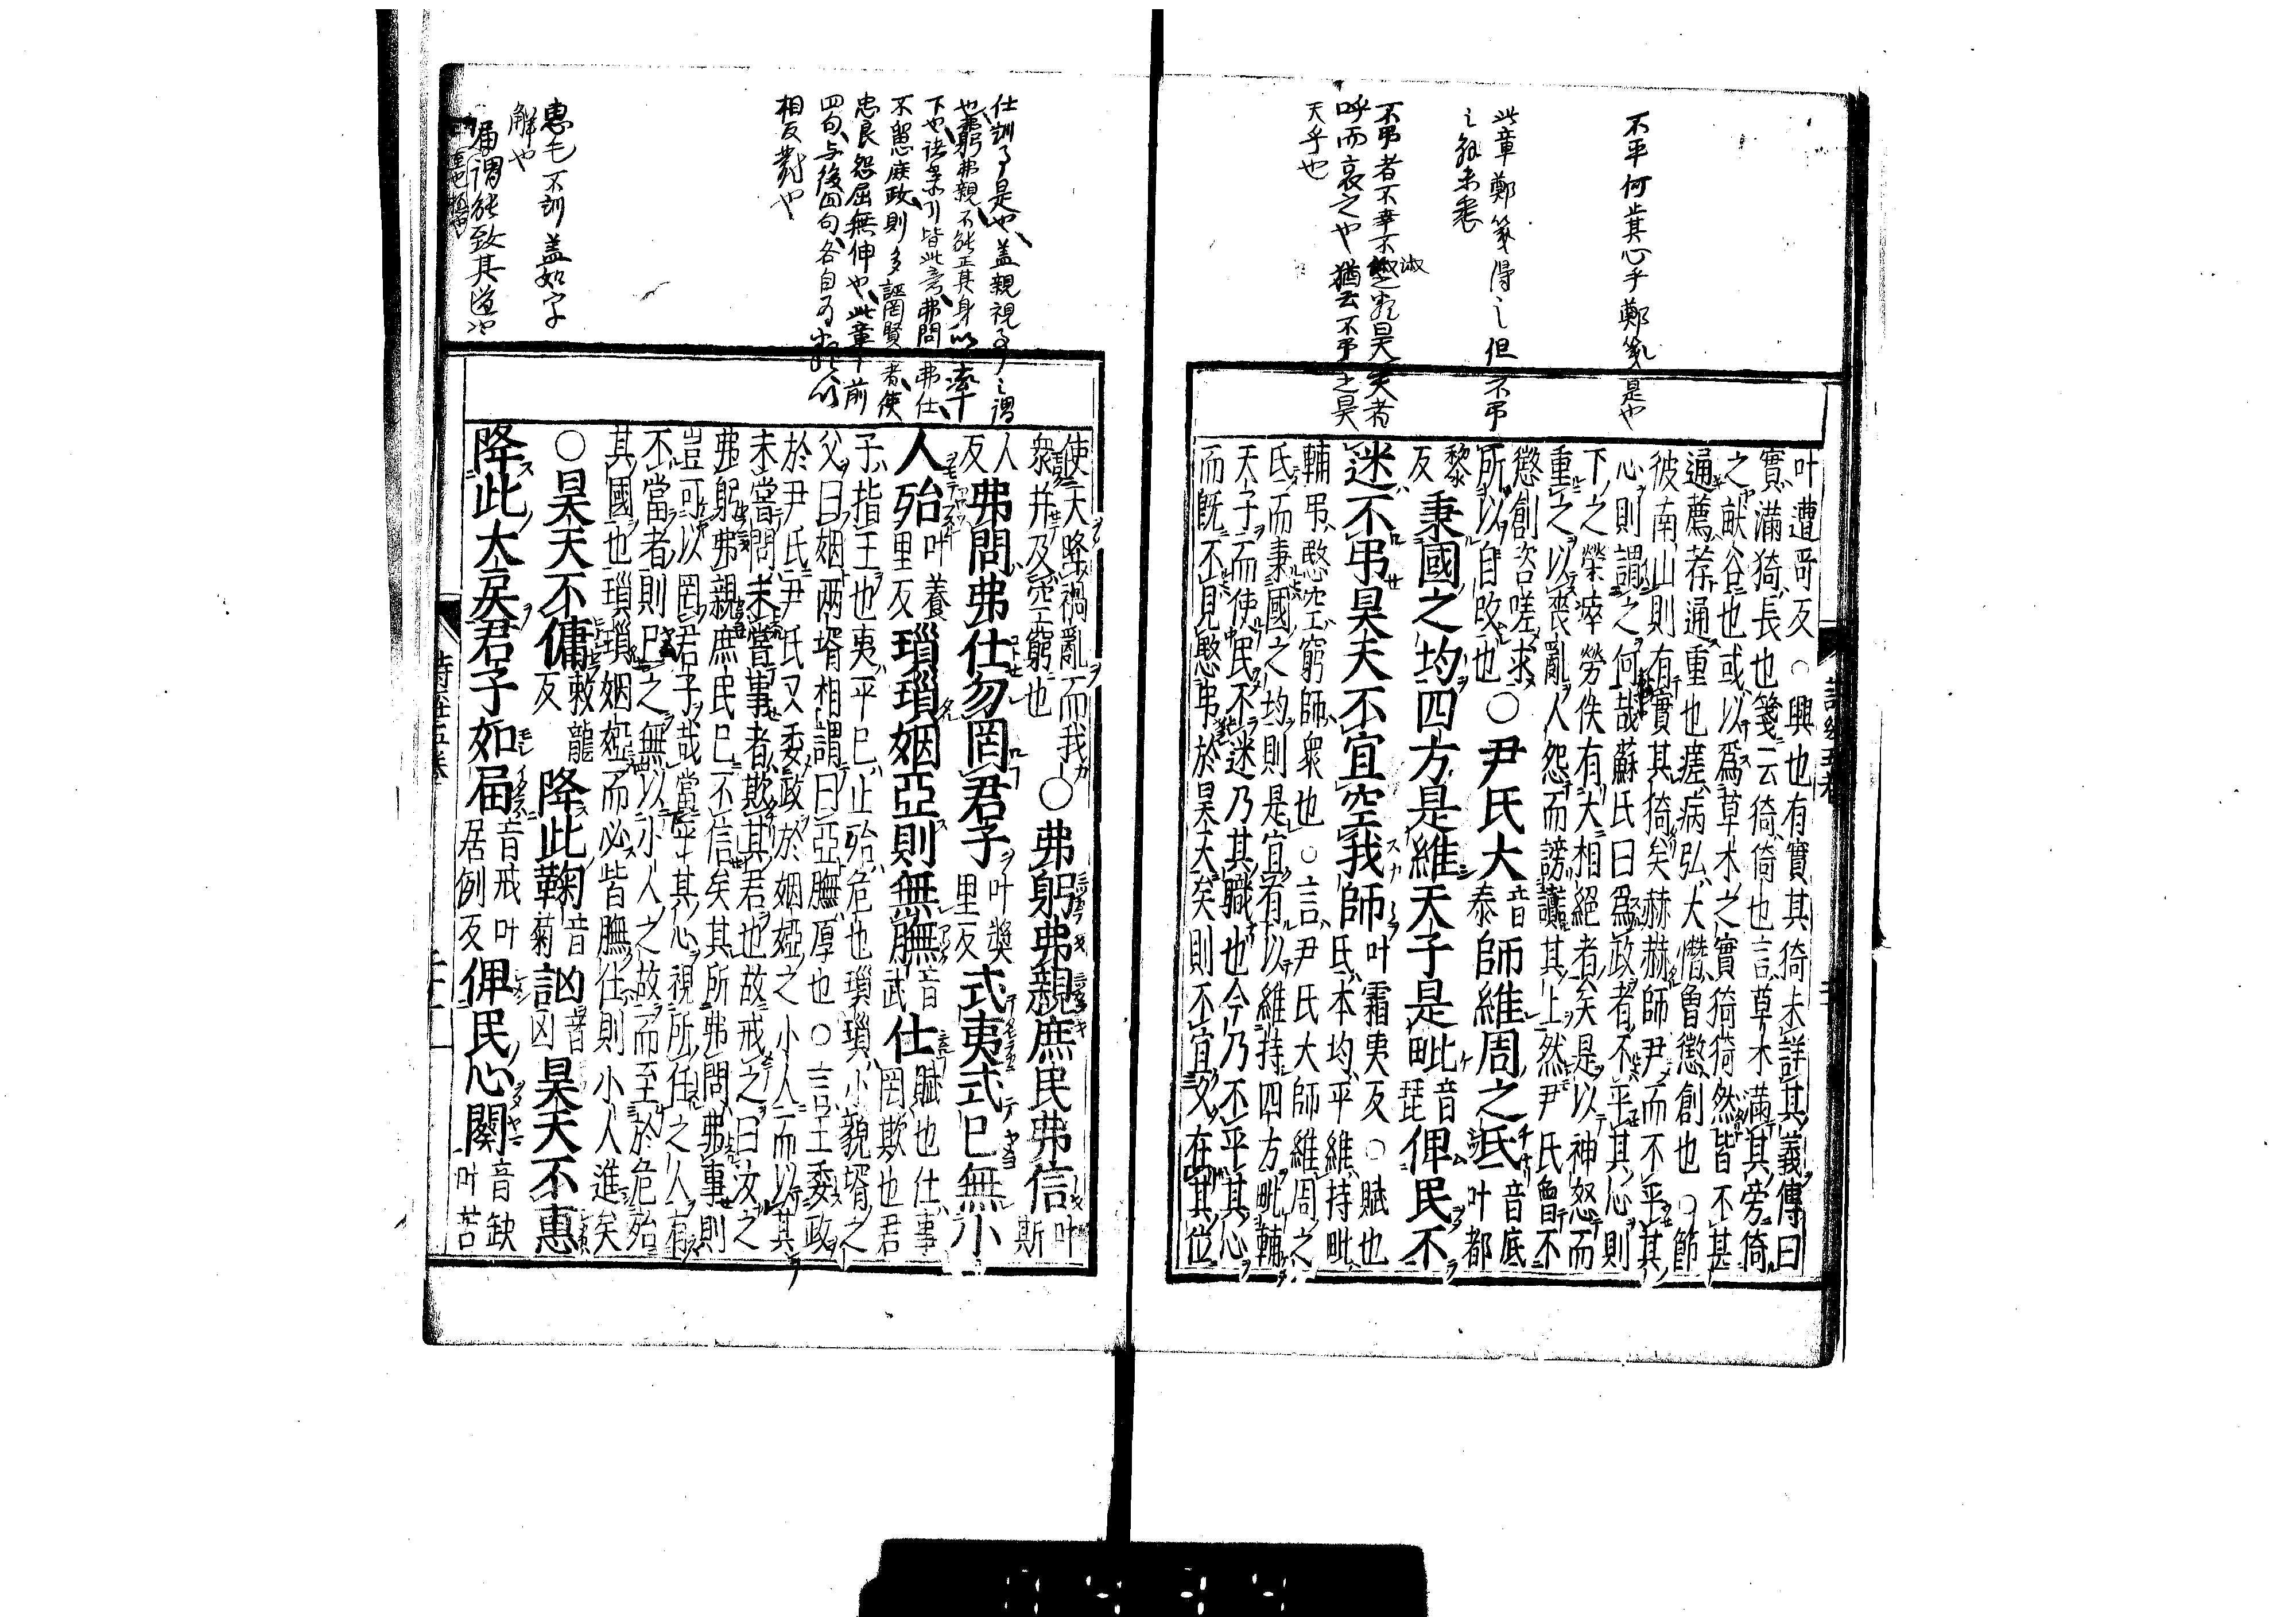 不平何其心乎鄭箋是也
此章鄭箋得之但不弔
之解未悉
不弔者不幸不淑之意昊天者
呼而哀之也猶云不弔乎昊
天乎也
叶遭哥反○興也有實其猗未詳其義傳曰
實滿猗長也箋云猗倚也言草木滿其旁倚
之畎谷也或以爲草木之實猗猗然皆不甚
通薦荐通重也瘥病弘大憯曾懲創也○節
彼南山則有實其猗矣赫赫師尹而不平其
心則謂之何哉蘇氏曰爲政者不平其心則
下之榮瘁勞佚有大相絕者矣是以神怒而
重之以喪亂人怨而謗讟其上然尹氏曾不
懲創咨嗟求
所以自改也○尹氏大音泰師維周之氐音底叶都
黎反秉國之均四方是維天子是毗音琵俾民不
迷不弔昊天不宜空我師叶霜夷反○賦也
氐本均平維持毗
輔弔愍空窮師衆也○言尹氏大師維周之
氐而秉國之均則是宜有以維持四方毗輔
天子而使民不迷乃其職也今乃不平其心
而既不見愍弔於昊天矣則不宜又在其位
仕訓事是也盖親視事之謂
也弗躬弗親不能正其身以率
下也
忠良怨屈無伸也此章前
四句与後四句各自
相反對也
惠毛不訓盖如字
解也
届謂能致其道也
使天降禍亂而我
衆并及空窮也○弗躬弗親庶民弗信叶斯
人反弗問弗仕勿罔君子叶奬里反式夷式已無小
人殆叶養里反瑣瑣姻亞則無膴音武仕賦也仕事
罔欺也君
子指王也夷平已止殆危也瑣瑣小貌壻之
父曰姻兩壻相謂曰亞膴厚也○言王委政
於尹氏尹氏又委政於姻婭之小人而以其
未嘗問未嘗事者欺其君也故戒之曰汝之
弗躬弗親庶民已不信矣其所弗問弗事則
豈可以罔君子哉當平其心視所任之人有
不當者則已之無以小人之故而至於危殆
其國也瑣瑣姻婭而必皆膴仕則小人進矣
○昊天不傭敕龍反降此鞠音菊訩音凶昊天不惠
降此大戾君子如届音戒叶居例反俾民心闋音缺叶苦